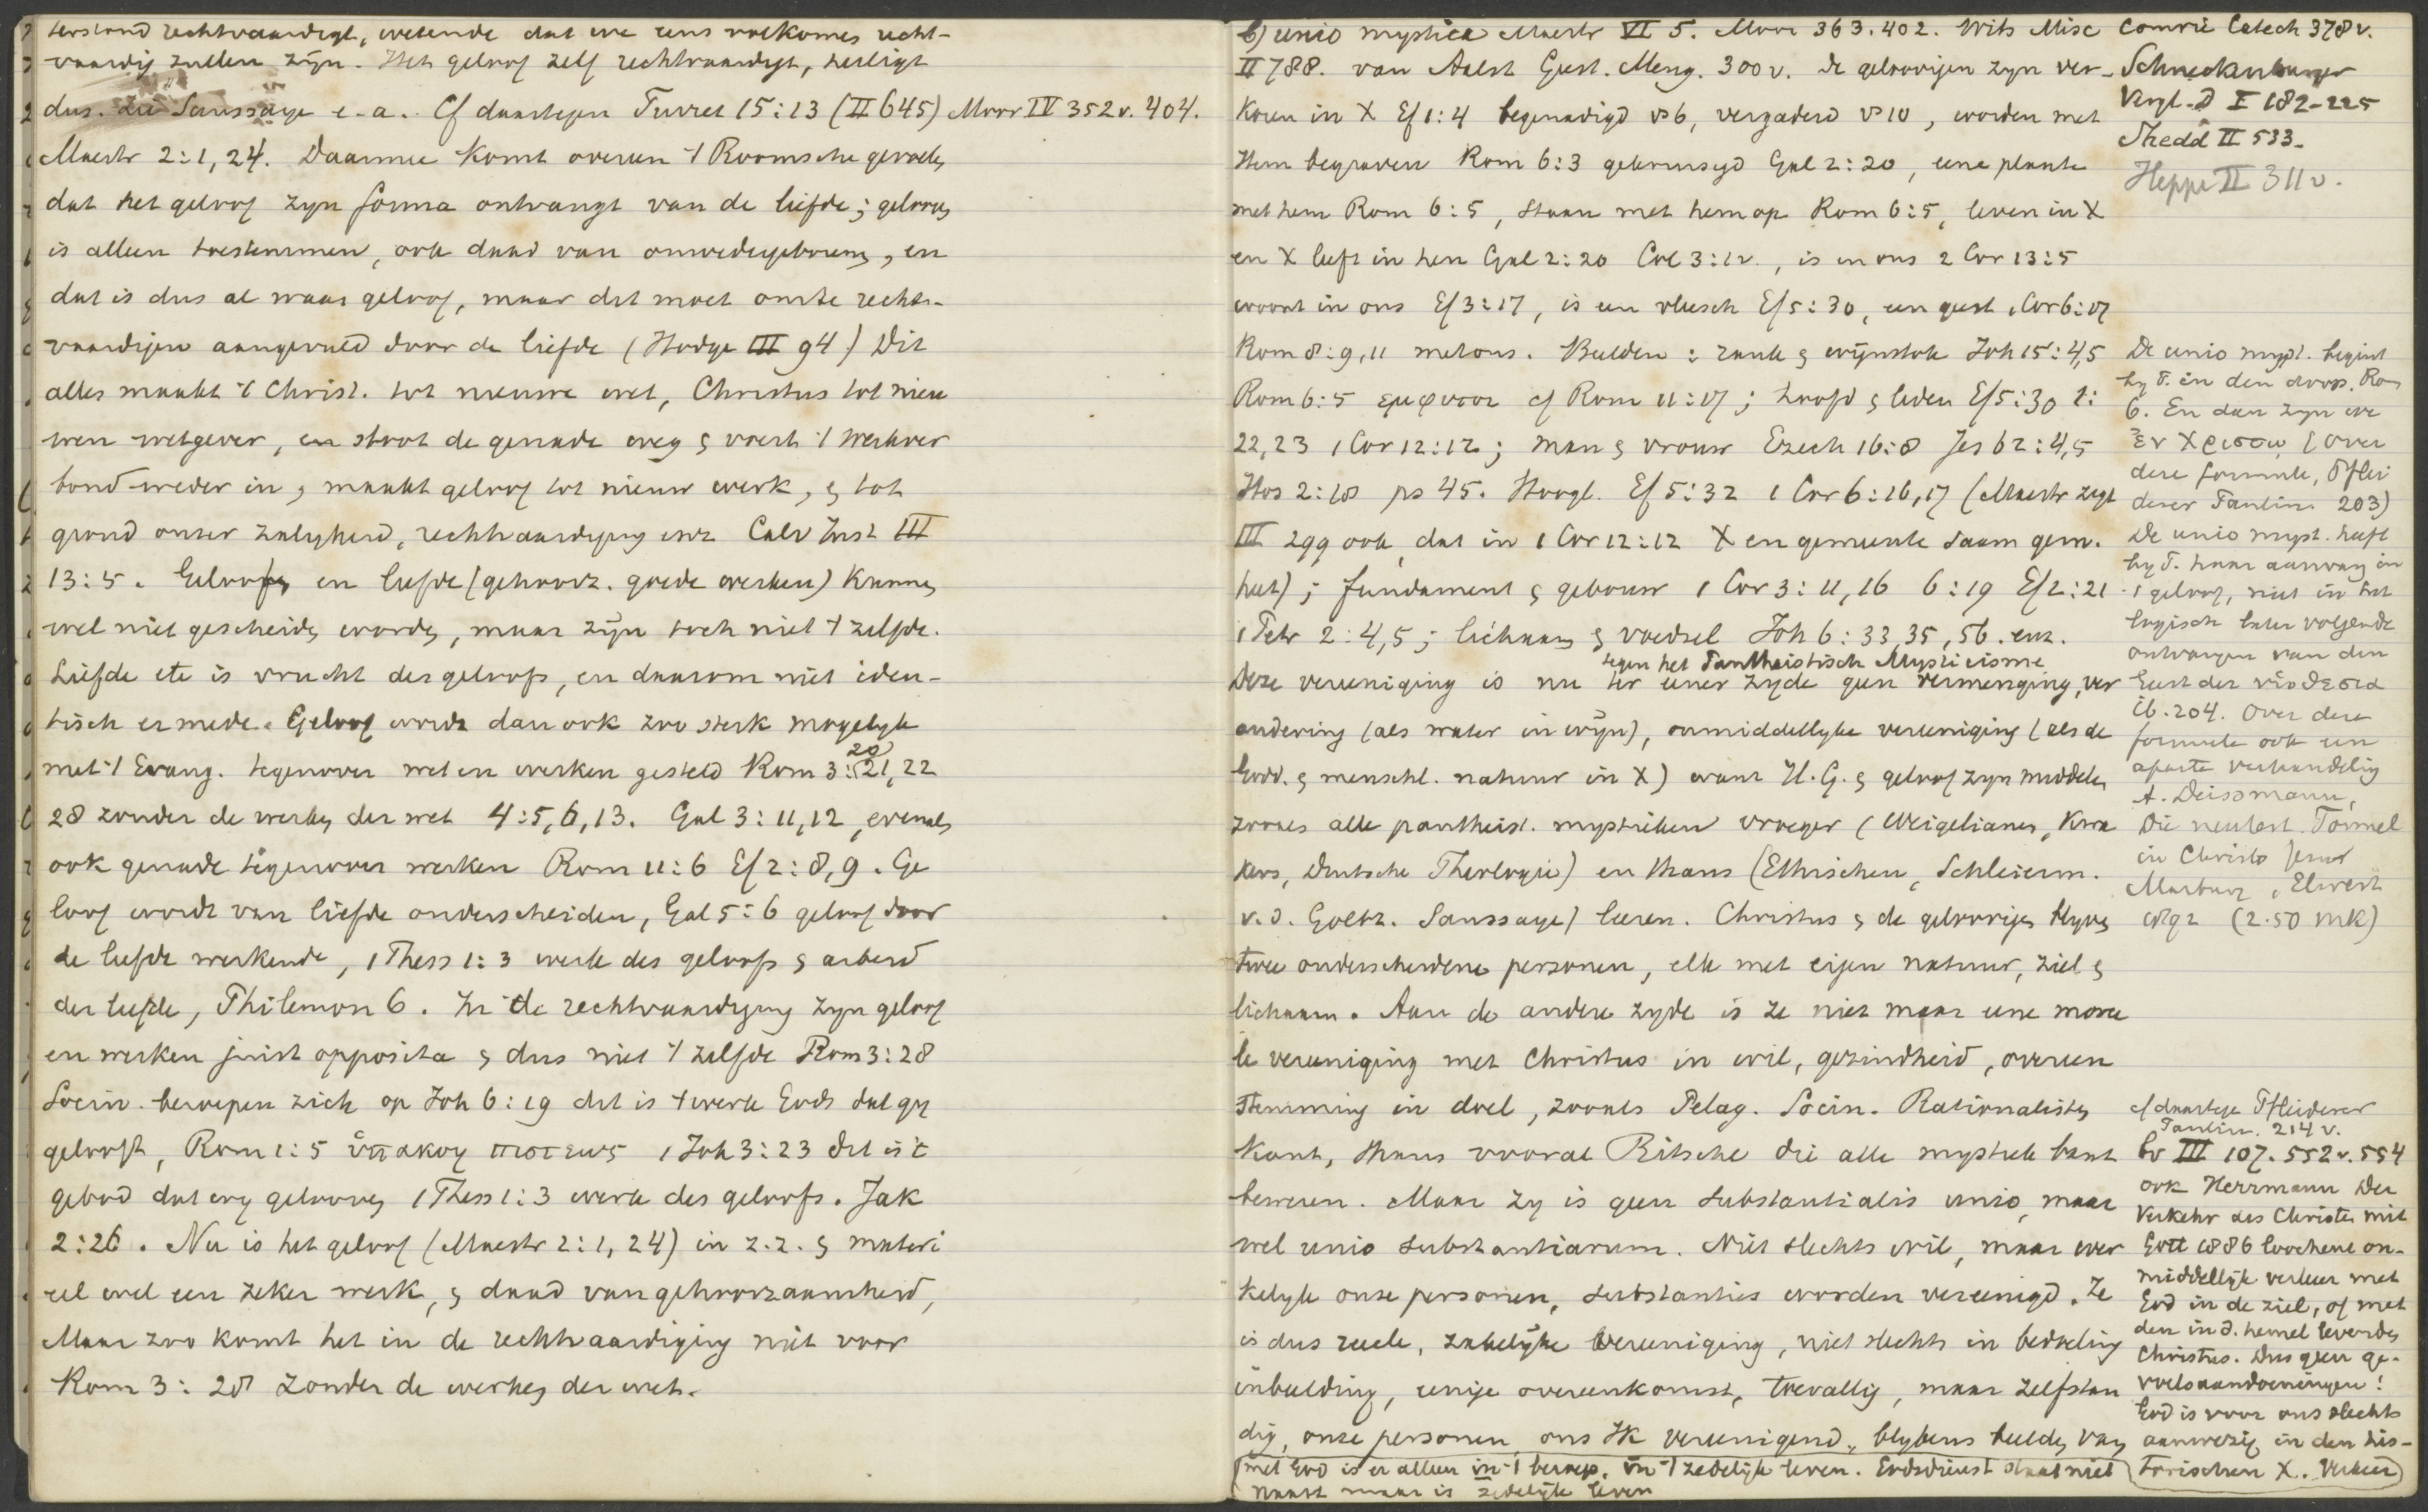 terstond rechtvaardigt, wetende dat we eens volkomen recht-
vaardig zullen zijn. Het geloof zelf rechtvaardigt, heiligt
dus. de Saussaye e.a. Cf daartegen Turret 15:13 (II 645) Moor IV 352v. 404.
Maestr 2:1, 24. Daarmee komt overeen 't Roomsche gevoelen,
dat het geloof zyn forma ontvangt van de liefde; gelooven
is alleen toestemmen, ook daad van onwedergeborenen, en
dat is dus al waar geloof, maar dit moet om te recht-
vaardigen aangevuld door de liefde (Hodge III 94) Dit
alles maakt 't Christ. tot nieuwe wet, Christus tot nieu
wen wetgever, en stoot de genade weg & voert 't werkver
bond weder in, maakt geloof tot nieuw werk, & tot
grond onzer zaligheid, rechtvaardiging enz Calv Inst III
13:5. Geloof en liefde (gehoorz. goede werken) kunnen
wel niet gescheiden worden, maar zijn toch niet 't zelfde.
Liefde etc is vrucht des geloofs, en daarom niet iden-
tisch ermede. Geloof wordt dan ook zoo sterk mogelyk
met 't Evang. tegenover wet en werken gesteld Rom 3:20, 21, 22
28 zonder de werken der wet 4:5, 6, 13. Gal 3:11, 12, evenals
ook genade tegenover werken Rom 11:6 Ef 2:8, 9. Ge
loof wordt van liefde onderscheiden, Gal 5:6 geloof door
de liefde werkende, 1 Thess 1:3 werk des geloofs & arbeid
der liefde, Philemon 6. In de rechtvaardiging zyn geloof
en werken juist opposita & dus niet 't zelfde Rom 3:28
Socin. beroepen zich op Joh 6:29 dit is 't werk Gods dat gy
gelooft, Rom 1:5 ὑπακοη πιστεως 1 Joh 3:23 dit is 't
gebod dat wy gelooven 1 Thess 1:3 werk des geloofs. Jak
2:26. Nu is het geloof (Maestr 2:1, 24) in z.z. & materi
eel wel een zeker werk, & daad van gehoorzaamheid,
Maar zoo komt het in de rechtvaardiging niet voor
Rom 3:28 zonder de werken der wet.
b) unio mystica Maestr VI 5. Moor 363.402. Wits Misc
II 788. van Aalst Geest. Meng. 300v. de geloovigen zyn ver-
koren in X Ef 1:4 begenadigd vs 6, vergaderd vs 10, worden met
Hem begraven Rom 6:3 gekruisigd Gal 2:20, eene plante
met hem Rom 6:5, staan met hem op Rom 6:5, leven in X
en X leeft in hen Gal 2:20 Col 3:12., is in ons 2 Cor 13:5
woont in ons Ef 3:17, is een vleesch Ef 5:30, een geest 1 Cor 6:17
Rom 8:9, 11 met ons. Beelden: rank & wijnstok Joh 15:4,5
Rom 6:5 εμφυτοι cf Rom 11:17; hoofd & leden Ef 5:30 1:
22, 23 1 Cor 12:12; man & vrouw Ezech 16:8 Jes 62:4,5
Hos 2:18 ps 45. Hoogl. Ef 5:32 1 Cor 6:16, 17 (Maestr zegt
III 299 ook, dat in 1 Cor 12:12 X en gemeente saam gem.
heet); fundament & gebouw 1 Cor 3:11, 16 6:19 Ef 2:21
1 Petr 2:4,5; lichaam & voedsel Joh 6:33, 35, 56. enz.
tegen het Pantheistisch Mysticisme
Deze vereeniging is nu ter eener zyde geen vermenging, ver
andering (als water in wijn), onmiddellyke vereeniging (als de
Godd. & menschl. natuur in X) want H.G. & geloof zyn middelen
zooals alle pantheist. mystieken vroeger (Weigelianen, Kwa
kers, Deutsche Theologie) en thans (Ethischen, Schleierm.
v.d. Goltz. Saussaye) leeren. Christus & de geloovigen blyven
twee onderscheidene personen, elk met eigen natuur, ziel &
lichaam. Aan de andere zyde is ze niet maar eene more
le vereeniging met Christus in wil, gezindheid, overeen
stemming in doel, zooals Pelag. Socin. Rationalisten
Kant, thans vooral Ritschl die alle mystiek bant
beweren. Maar zy is geen substantialis unio, maar
wel unio substantiarum. Niet slechts wil, maar wer
kelyk onze personen, substanties worden vereenigd. Ze
is dus reele, zakelijke vereeniging, niet slechts in bedoeling
inbeelding, eenige overeenkomst, toevallig, maar zelfstan
dig, onze personen, ons Ik vereenigend, blykens beelden van
Comrie Catech 378v.
Schneckenburger
Vergl. D I 182-225
Shedd II 533.
Heppe II 311v.
De unio myst. begint
by P. in den doop. Rom
6. En dan zyn we
ἐν Χριστῳ (over
deze formule, Pflei
derer Paulin. 203)
De unio myst. heeft
by P. haar aanvang in
't geloof, niet in het
logisch later volgende
ontvangen van den
Geest der υἱοθεσια
ib. 204. Over deze
formule ook een
aparte verhandeling
A. Deissmann,
Die neutest. Formel
in Christo Jesu
Marburg, Elwert
1892 (2.50 mk)
cf daartegen Pfleiderer
Paulin. 214v.
bv III 107. 552v. 554
ook Herrmann Der
Verkehr des Christen mit
Gott 1886 loochent on-
middellijk verkeer met
God in de ziel, of met
den in d. hemel levenden
Christus. Dus geen ge-
voelsaandoeningen!
God is voor ons slechts
aanwezig in den his-
torischen X. Verkeer
met God is er alleen in 't beroep, in 't zedelijk leven. Godsdienst staat niet
naast maar is zedelijk leven